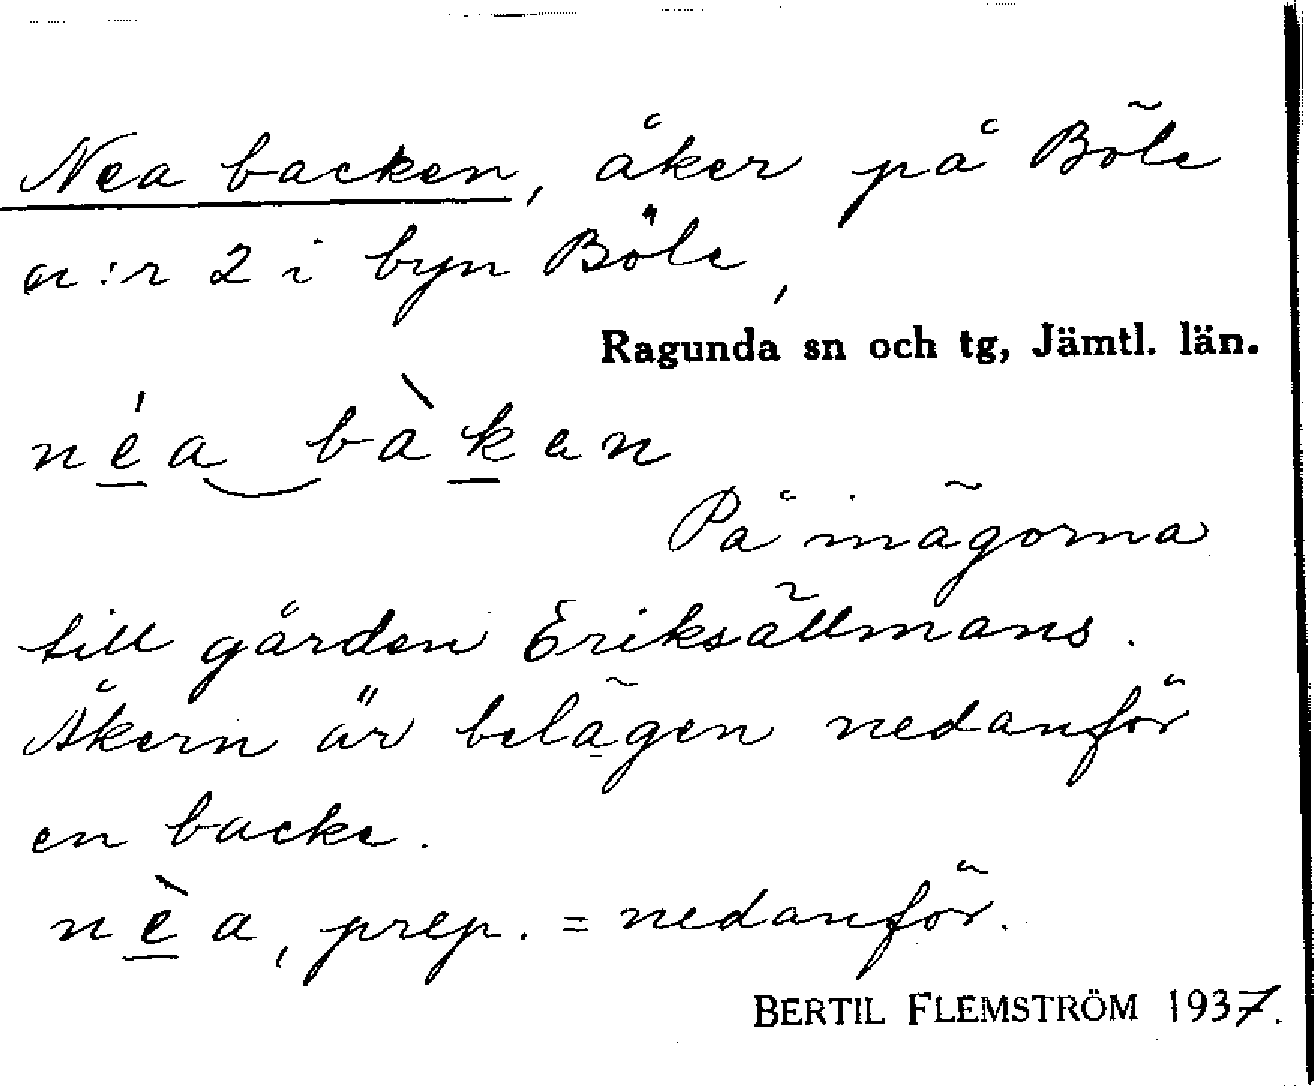 Nea backen, åker på Böle
n:r 2 i byn Böle,
Ragunda sn och tg, Jämtl. län.
néa bàkan
På inägorna
till gården Eriksällmans.
Åkern är belägen nedanför
en backe.
nèa, prep. = nedanför.
BERTIL FLEMSTRÖM 1937.